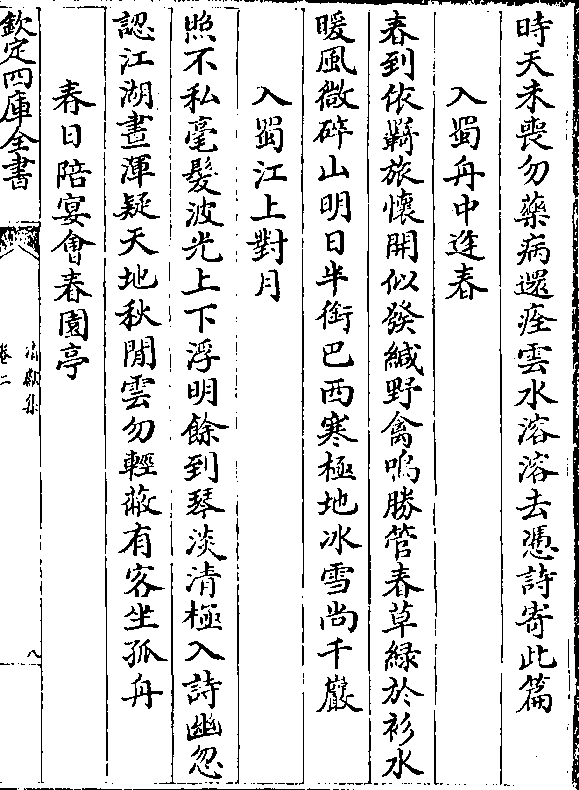 時天未喪勿藥病還痊雲水溶溶去憑詩寄此篇
入蜀舟中逢春
春到依羇旅懷開似發緘野禽鳴勝管春草緑於衫水
暖風微碎山明日半銜巴西寒極地冰雪尚千巖
入蜀江上對月
照不私毫髮波光上下浮明餘到琴淡清極入詩幽忽
認江湖晝渾疑天地秋閒雲勿輕蔽有客坐孤舟
春日陪宴會春園亭
欽定四庫全書
清獻集
卷二
八